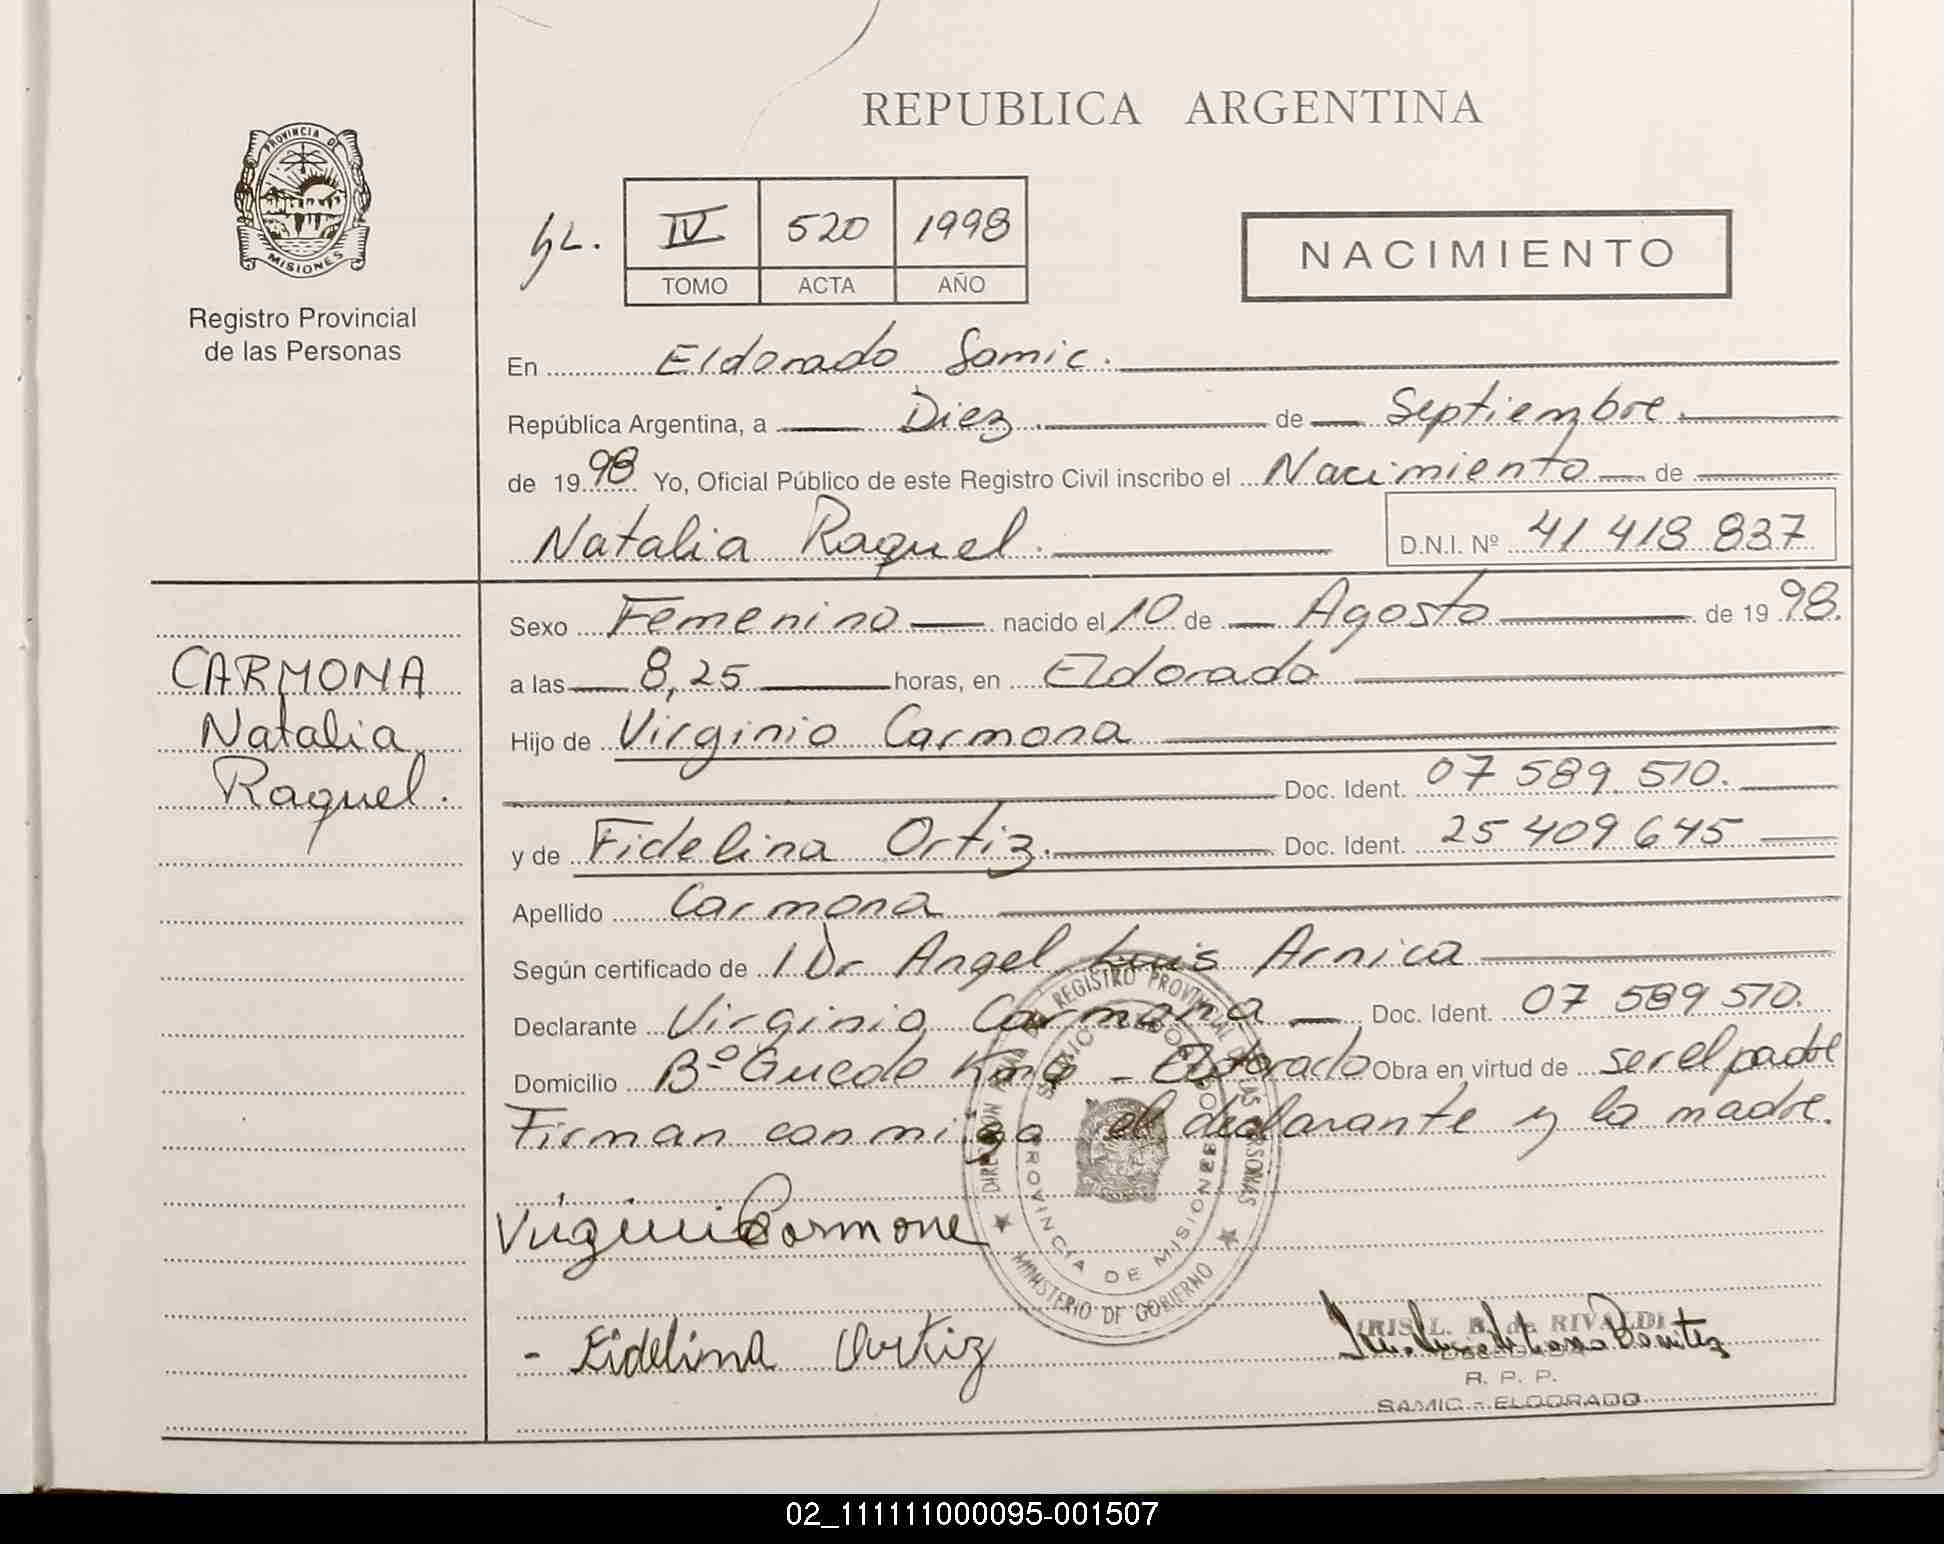 REPUBLICA ARGENTINA
PROVINCIA DE
MISIONES
Registro Provincial
de las Personas
IV 520 1998
TOMO ACTA AÑO
NACIMIENTO
En Eldorado Samic.
República Argentina, a Diez de Septiembre
de 19 98 Yo, Oficial Público de este Registro Civil inscribo el Nacimiento de
Natalia Raquel. D.N.I. Nº 41 418 837
CARMONA
Natalia
Raquel.
Sexo Femenino nacido el 10 de Agosto de 19 98.
a las 8,25 horas, en Eldorado
Hijo de Virginio Carmona
Doc. Ident. 07 589 510.
y de Fidelina Ortiz. Doc. Ident. 25 409 645
Apellido Carmona
Según certificado de Dr Angel Luis Arnica
Declarante Virginio Carmona Doc. Ident. 07 589 510.
Domicilio Bº Guede - Eldorado Obra en virtud de ser el padre
Firman conmigo el declarante y la madre.
REGISTRO PROVINCIAL DE LAS PERSONAS
MINISTERIO DE GOBIERNO
PROVINCIA DE MISIONES
Virginio Carmona
- Fidelina Ortiz
IRIS L. B. de RIVALDI
R. P. P.
SAMIC - ELDORADO
02_111111000095-001507